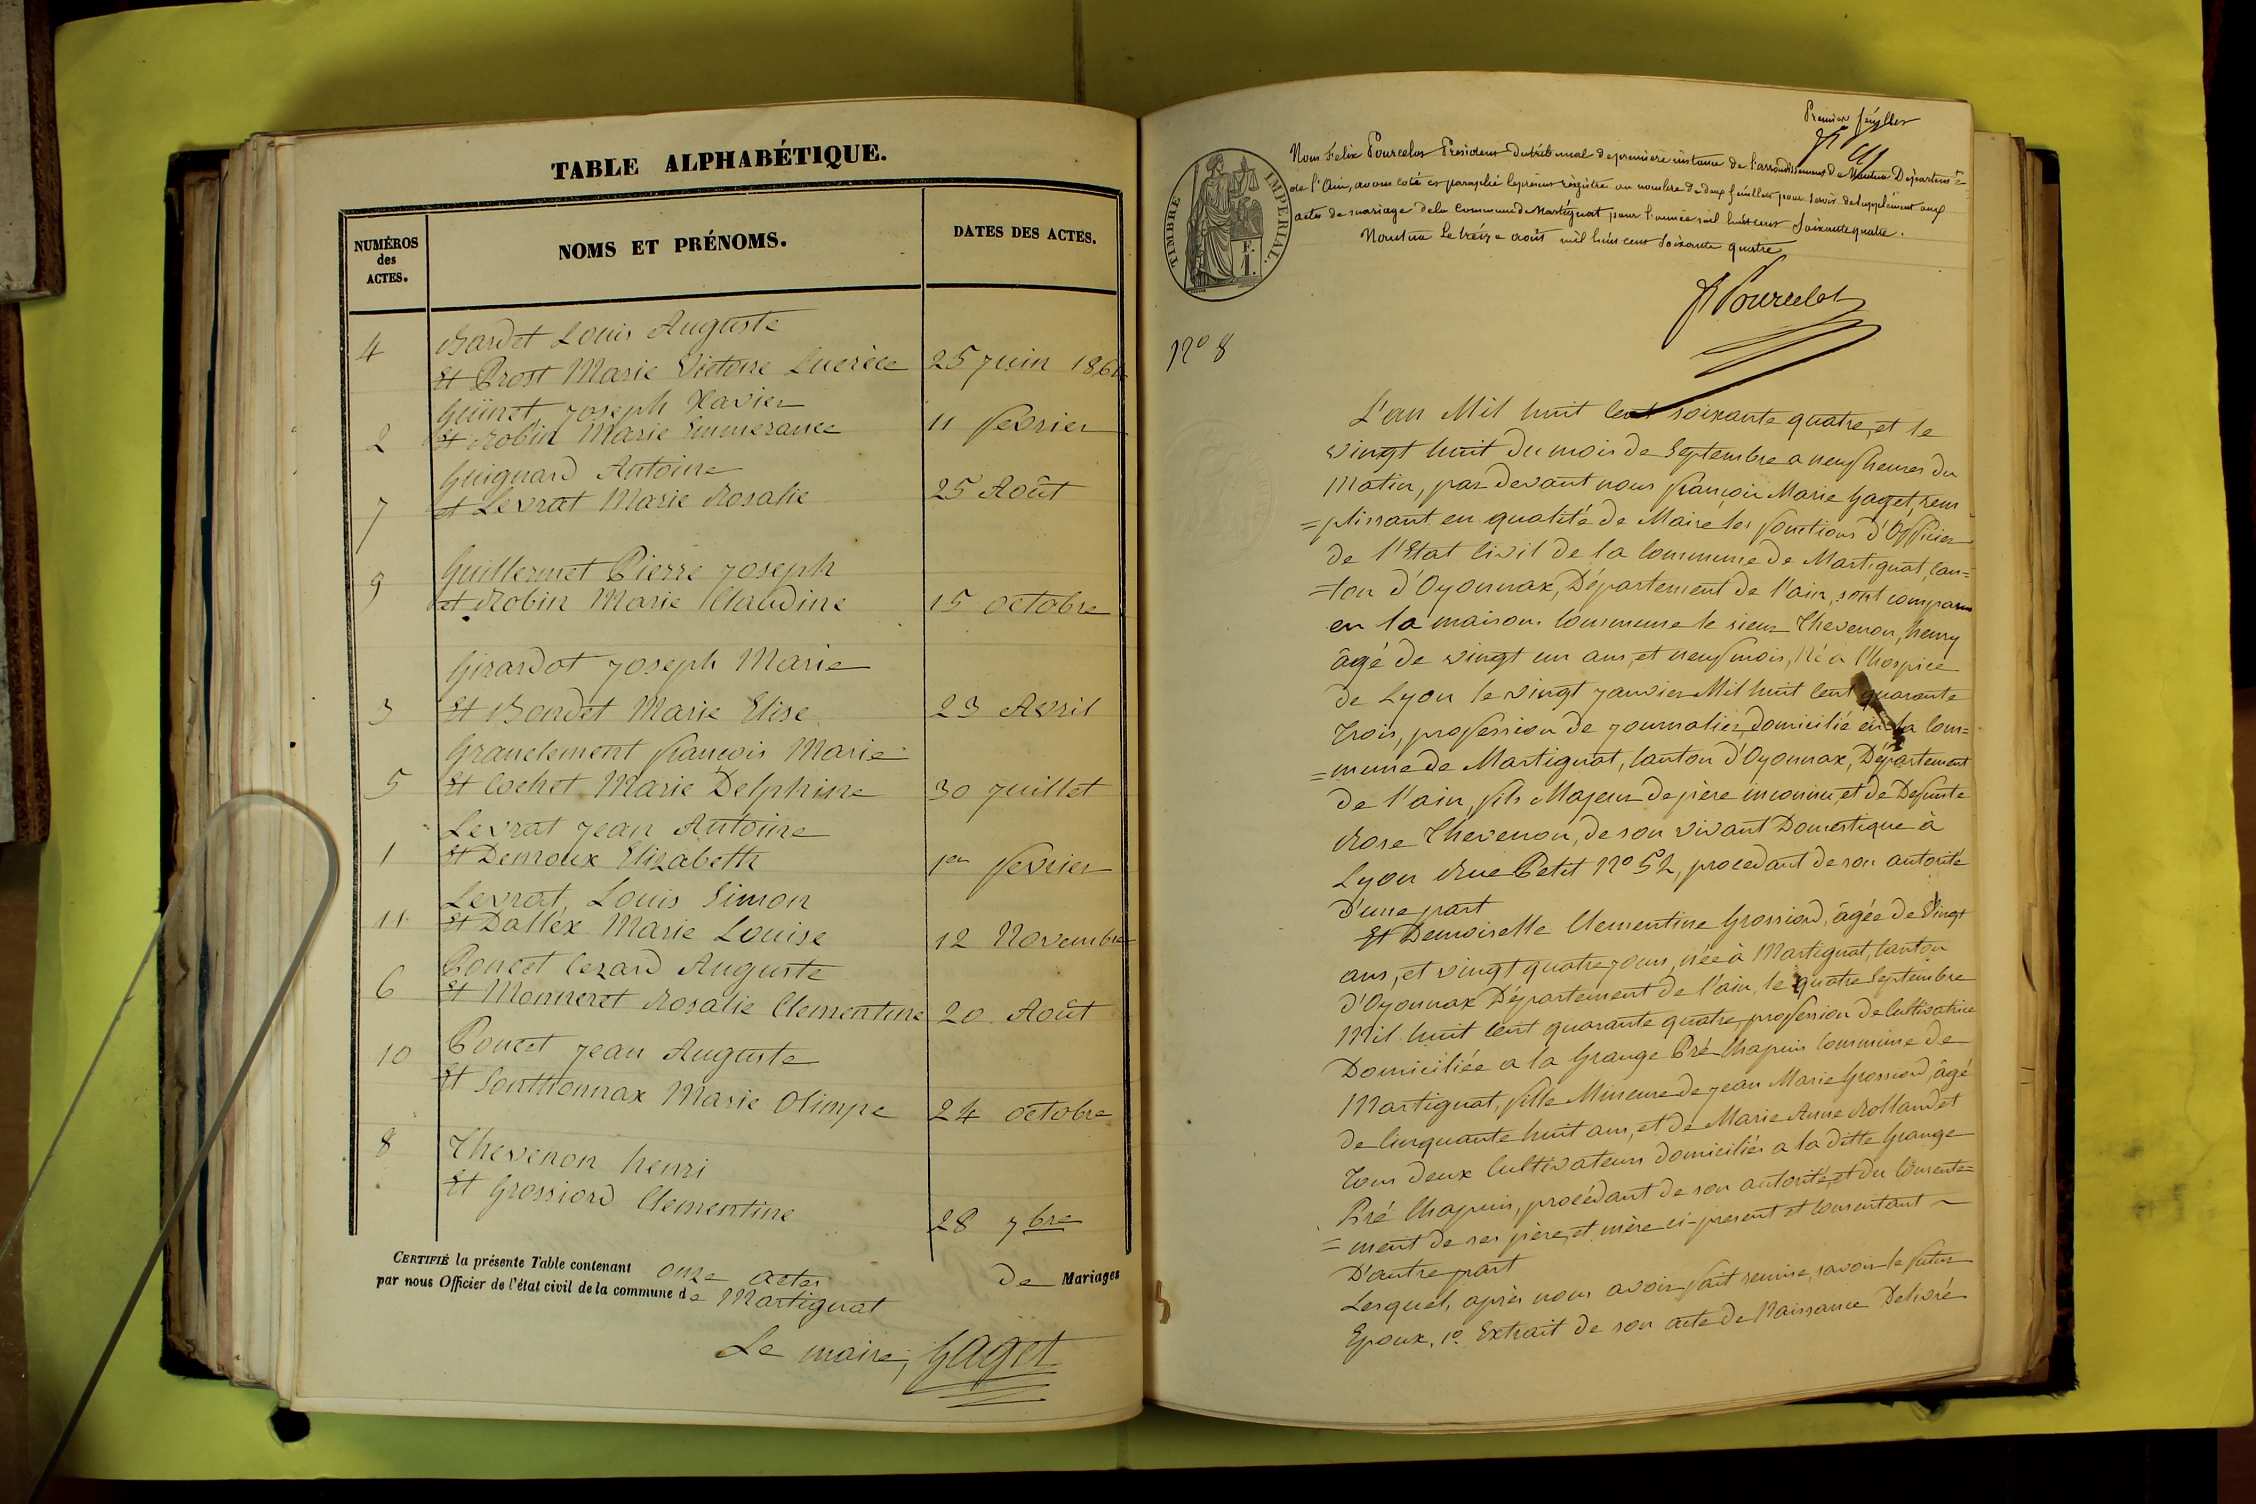 TABLE ALPHABÉTIQUE.
NUMÉROS
des
ACTES.
NOMS ET PRÉNOMS.
DATES DES ACTES.
4 Bardet Louis Auguste
Et Prost Marie Victoire Lucrèce 25 juin 1864
Guinet, Joseph Xavier
2 Et Robin Marie Emmerance 11 fevrier
Guignard Antoine
7 et Levrat Marie Rosalie 25 Août
Guillermet Pierre Joseph
9 et Robin Marie Claudine 15 octobre
Girardot Joseph Marie
3 Et Bondet Marie Elise 23 Avril
Granclement françois Marie
5 Et Cochet Marie Delphine 30 juillet
Levrat Jean Antoine
1 Et Demoux Elizabeth 1er fevrier
Levrat, Louis Simon
11 Et Dallex Marie Louise 12 Novembre
Poncet Cezard Auguste
6 Et Monneret Rosalie Clementine 20 Août
10 Poncet Jean Auguste
Et Sonthonnax Marie Olimpe 24 octobre
8 Thevenon henri
Et Grossiord Clementine 28 7bre
CERTIFIÉ la présente Table contenant onze actes de Mariages
par nous Officier de l'état civil de la commune de Martignat
Le maire, Gaget
Premier feuillet
TIMBRE IMPERIAL.
F.
1.
Nous Felix Pourcelot President du tribunal de premiere instance de l'arrondissement de Nantua Département
de l'Ain, avons coté et paraphé le présent régistre au nombre de deux feuillets pour servir de supplément aux
actes de mariage de la Commune de Martignat pour l'année mil huit cent soixante quatre.
Nantua le treize août mil huit cent soixante quatre
F Pourcelot
No 8
L'an Mil huit cent soixante quatre, et le
vingt huit du mois de Septembre a neuf heures du
Matin, par devant nous françois Marie Gaget, rem
=plissant en qualité de Maire les fonctions d'Officier
de l'Etat Civil de la Commune de Martignat, can=
=ton d'Oyonnax, Département de l'ain, sont comparus
en la maison Commune le sieur Thevenon, henry
âgé de vingt un ans, et neuf mois, Né à l'hospice
de Lyon le vingt janvier Mil huit cent quarante
Trois, profession de journalier, domicilié en la Com=
=mune de Martignat, Canton d'Oyonnax, Département
de l'ain, fils Majeur de père inconnu, et de Defunte
Rose Thevenon, de son vivant Domestique à
Lyon Rue Petit No 52, procedant de son autorité
D'une part
Et Demoiselle Clementine Grossiord, âgée de Vingt
ans, et vingt quatre jours, née à Martignat, Canton
d'Oyonnax Département de l'ain, le quatre Septembre
Mil huit cent quarante quatre, profession de Cultivatrice
Domiciliée a la Grange Pré Chapuis Commune de
Martignat, fille Mineure de Jean Marie Grossiord, âgé
de Cinquante huit ans, et de Marie Anne Rollandet
Tous deux Cultivateurs domiciliés a la ditte Grange
Pré Chapuis, procédant de son autorité, et du Consente=
=ment de ses père, et mère ci-present et consentant
D'autre part
Lesquels, après nous avoir fait remise, savoir le futur
Epoux, 1o Extrait de son acte de Naissance Delivré